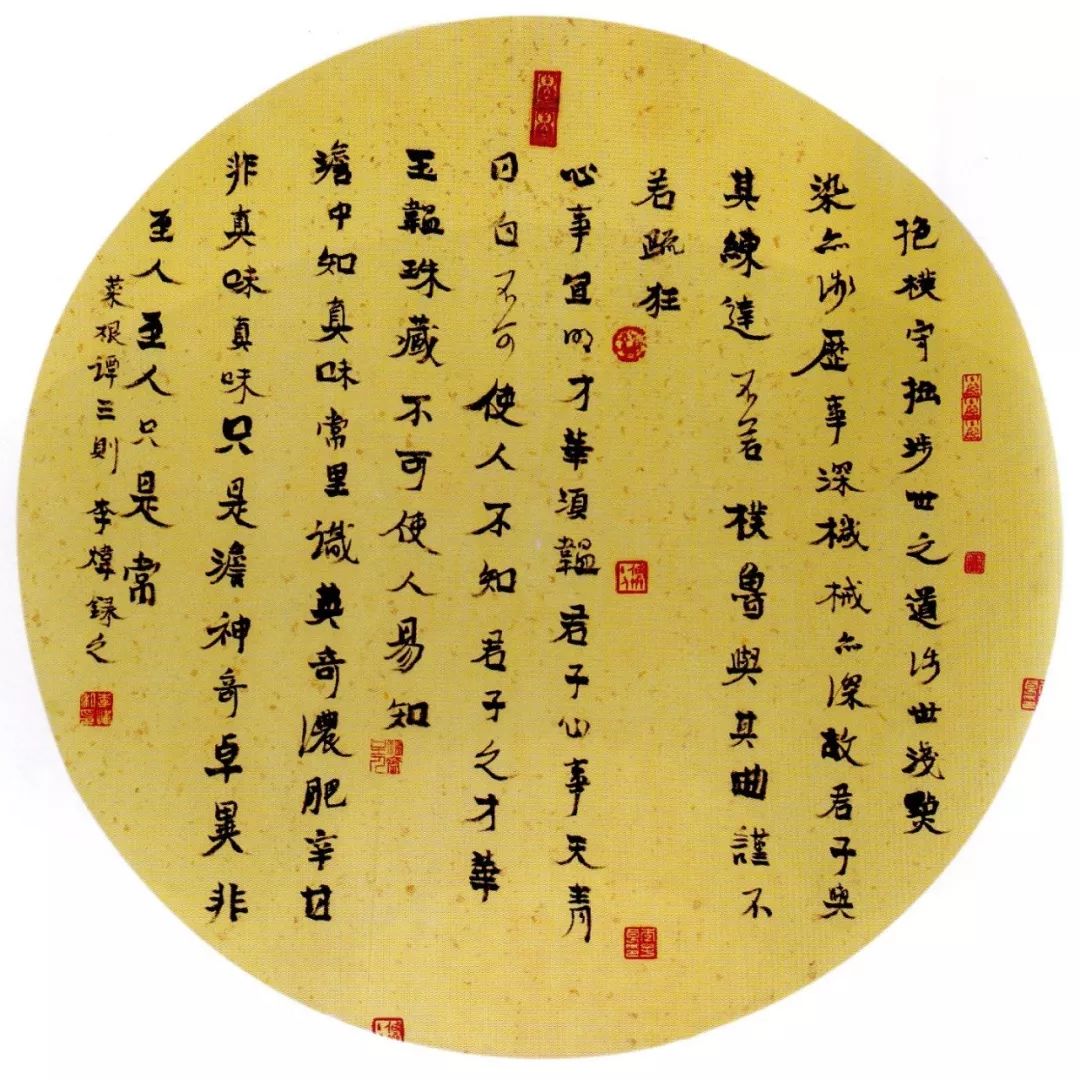 抱樸守拙涉世之道涉世淺點
染亦淺歷事深機械亦深故君子與
其練達不若樸魯與其曲謹不
若疏狂
心事宜明才華須韞君子心事天青
日白不可使人不知君子之才華
玉韞珠藏不可使人易知
澹中知真味常里識英奇濃肥辛甘
非真味真味只是澹神奇卓異非
至人至人只是常
菜根譚三則 李煒錄之